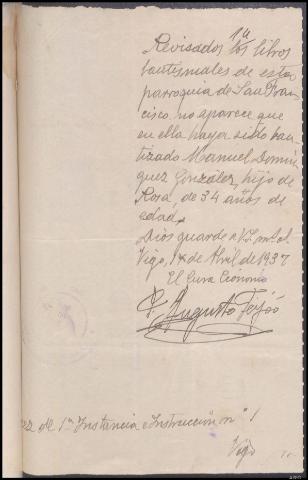 Revisados los libros
bautismales de esta
parroquia de San Fran
cisco, no aparece que
en ella haya sido bau
tizado Manuel Domin
guez González, hijo de
Rosa, de 34 años de
edad.
Dios guarde a V.S. m. a.
Vigo, 14 de Abril de 1937
El Cura Ecónomo
Augusto Feijóo
ez de 1ª Instancia e Instrucción nº 1
Vigo